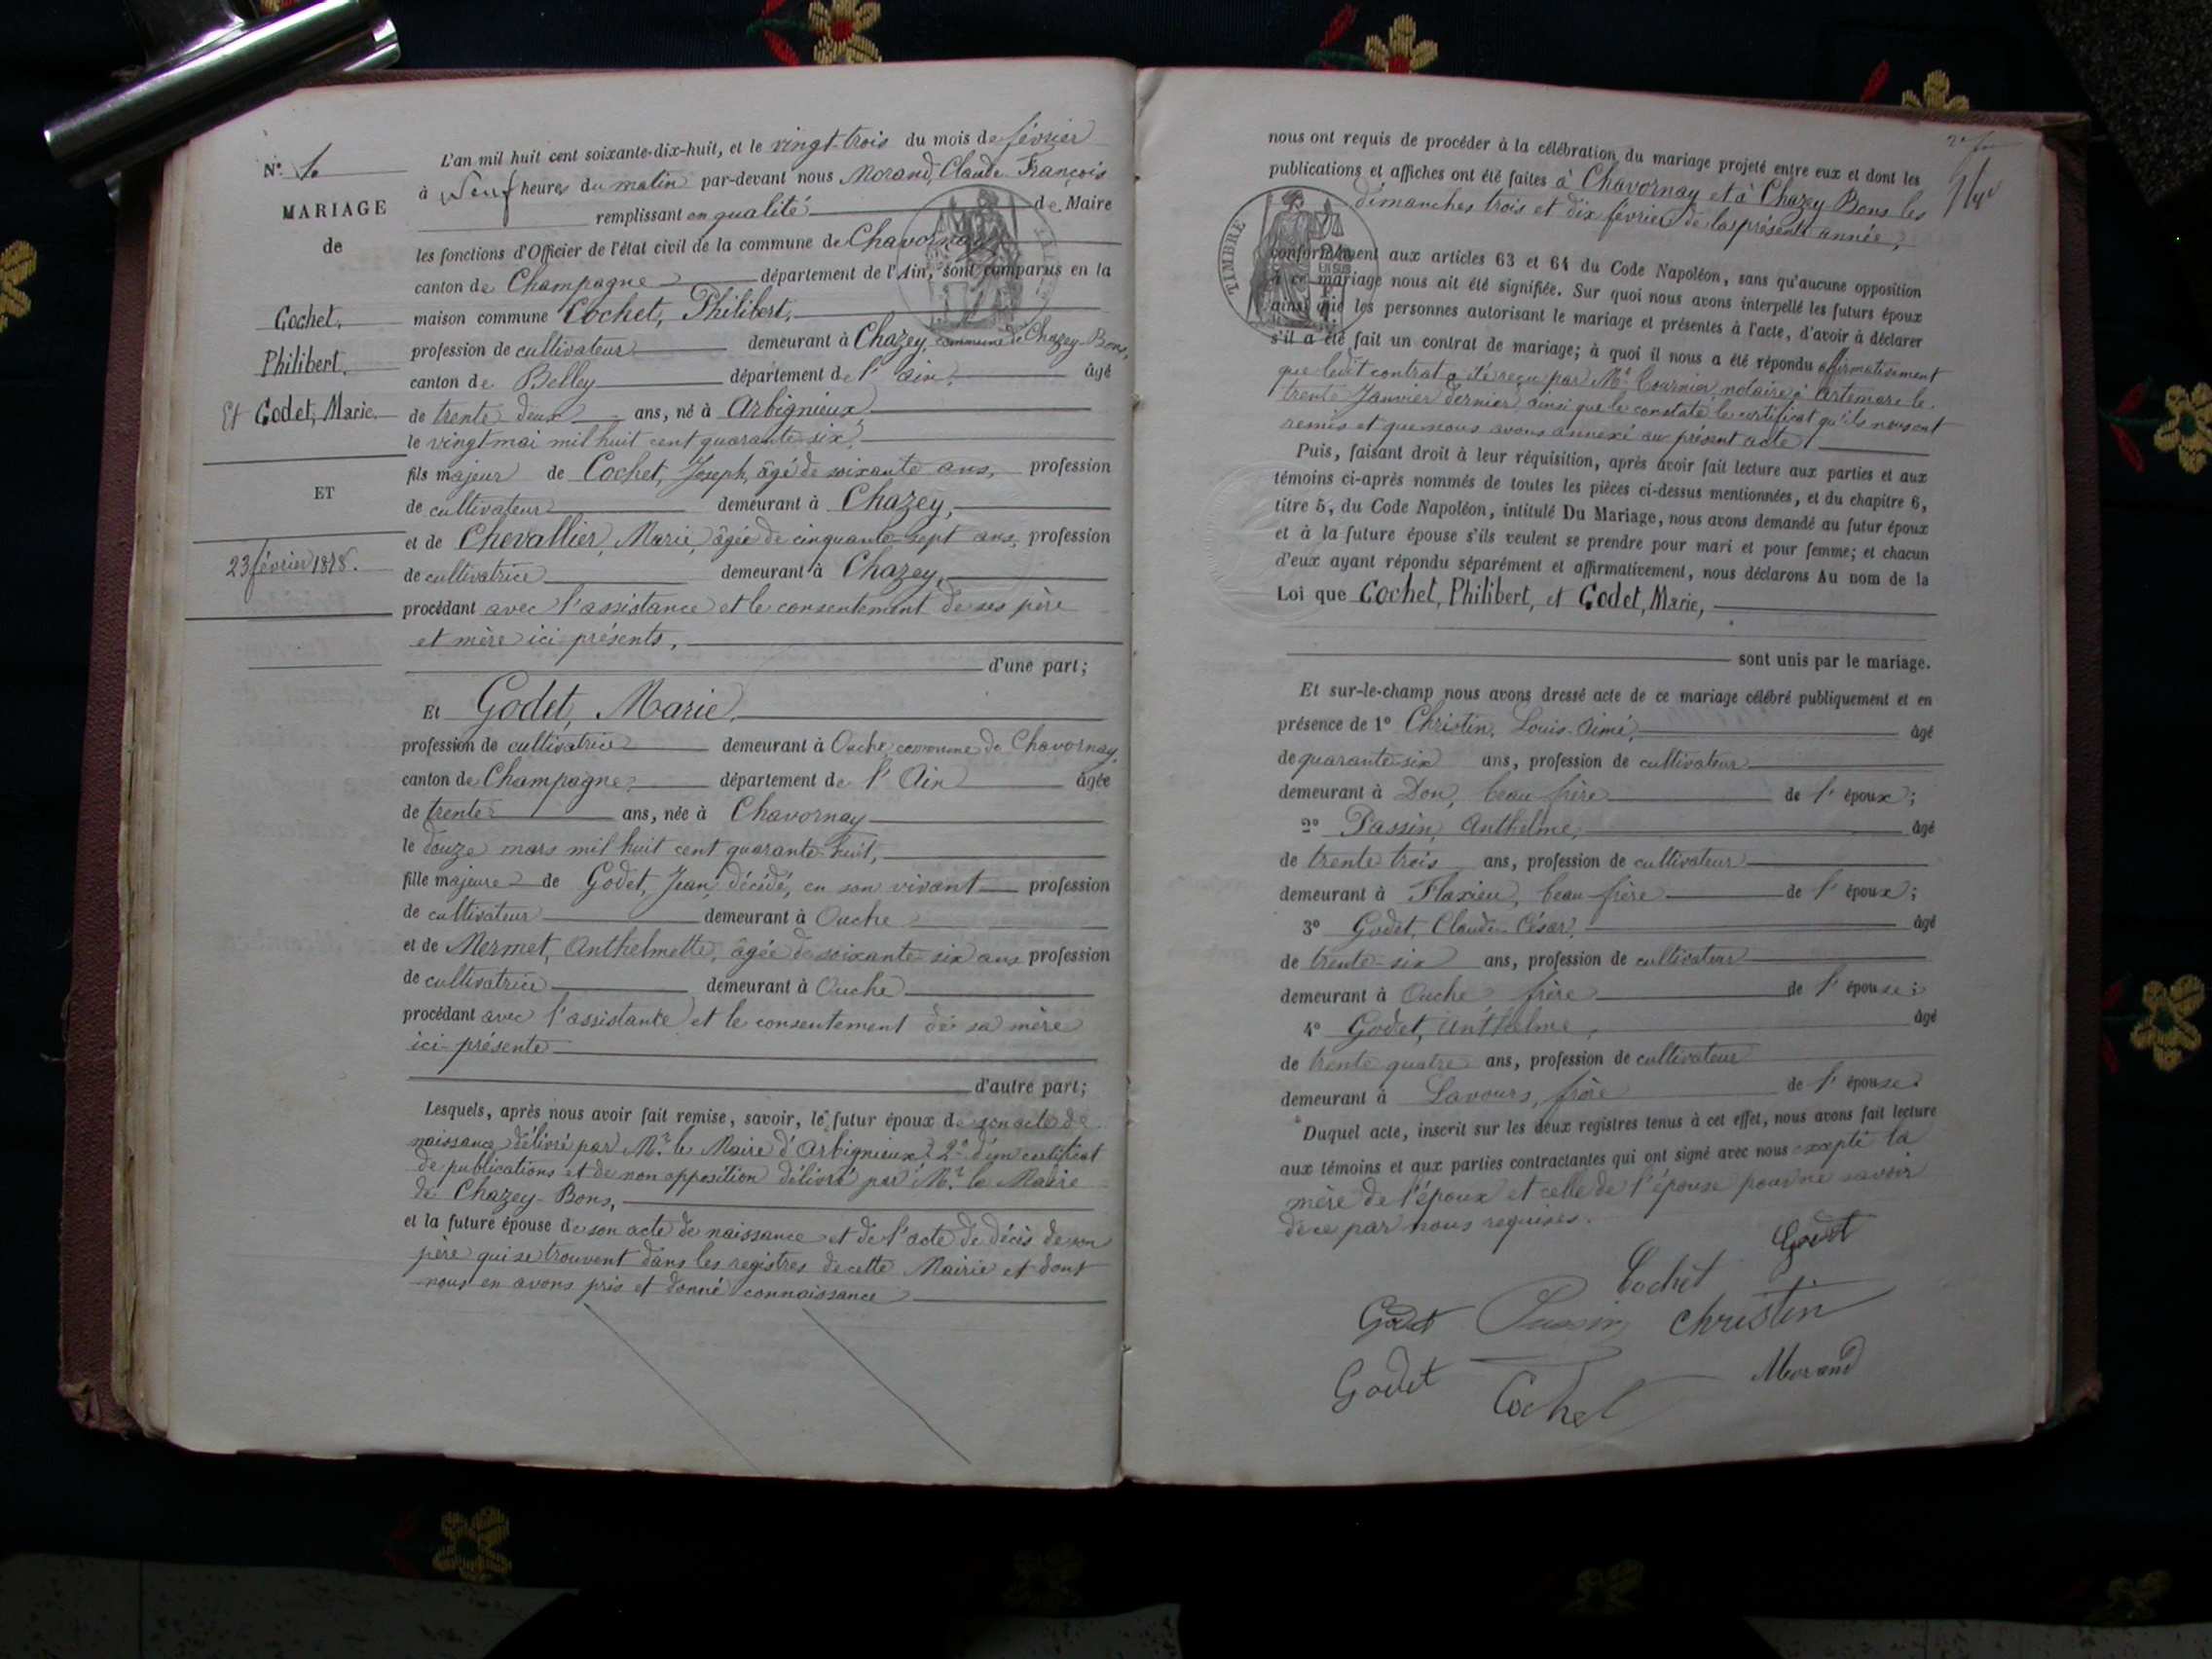 N° 1.
MARIAGE
de
Cochet,
Philibert.
Et Godet, Marie.
ET
23 février 1878.
L'an mil huit cent soixante-dix-huit, et le vingt-trois du mois de février
à Neuf heures du matin par-devant nous Morand, Claude François
remplissant en qualité de Maire
les fonctions d'Officier de l'état civil de la commune de Chavornay
canton de Champagne département de l'Ain, sont comparus en la
maison commune Cochet, Philibert,
profession de cultivateur demeurant à Chazey, commune de Chazey-Bons,
canton de Belley département de l'Ain, âgé
de trente deux ans, né à Arbignieux
le vingt mai mil huit cent quarante six,
fils majeur de Cochet, Joseph, âgé de soixante ans, profession
de cultivateur demeurant à Chazey,
et de Chevallier, Marie, âgée de cinquante-sept ans, profession
de cultivatrice demeurant à Chazey,
procédant avec l'assistance et le consentement de ses père
et mère ici présents,
d'une part;
Et Godet, Marie,
profession de cultivatrice demeurant à Ouche, commune de Chavornay,
canton de Champagne département de l'Ain âgée
de trente ans, née à Chavornay
le douze mars mil huit cent quarante-huit,
fille majeure de Godet, Jean, décédé, en son vivant profession
de cultivateur demeurant à Ouche
et de Mermet, Anthelmette, âgée de soixante-six ans profession
de cultivatrice demeurant à Ouche
procédant avec l'assistance et le consentement de sa mère
ici présente
d'autre part;
Lesquels, après nous avoir fait remise, savoir, le futur époux de son acte de
naissance délivré par Mr. le Maire d'Arbignieux, 2° d'un certificat
de publications et de non opposition délivré par Mr. le Maire
de Chazey-Bons,
et la future épouse de son acte de naissance et de l'acte de décès de son
père qui se trouvent dans les registres de cette Mairie et dont
nous en avons pris et donné connaissance
nous ont requis de procéder à la célébration du mariage projeté entre eux et dont les
publications et affiches ont été faites à Chavornay et à Chazey Bons les
dimanches trois et dix février de la présente année,
TIMBRE
conformément aux articles 63 et 64 du Code Napoléon, sans qu'aucune opposition
à ce mariage nous ait été signifiée. Sur quoi nous avons interpellé les futurs époux
ainsi que les personnes autorisant le mariage et présentes à l'acte, d'avoir à déclarer
s'il a été fait un contrat de mariage; à quoi il nous a été répondu affirmativement
que ledit contrat a été reçu par Me. Cournier, notaire à Artemare le
trente Janvier dernier, ainsi que le constate le certificat qu'ils nous ont
remis et que nous avons annexé au présent acte.
Puis, faisant droit à leur réquisition, après avoir fait lecture aux parties et aux
témoins ci-après nommés de toutes les pièces ci-dessus mentionnées, et du chapitre 6,
titre 5, du Code Napoléon, intitulé Du Mariage, nous avons demandé au futur époux
et à la future épouse s'ils veulent se prendre pour mari et pour femme; et chacun
d'eux ayant répondu séparément et affirmativement, nous déclarons Au nom de la
Loi que Cochet, Philibert, et Godet, Marie,
sont unis par le mariage.
Et sur-le-champ nous avons dressé acte de ce mariage célébré publiquement et en
présence de 1° Christin, Louis-Aimé, âgé
de quarante-six ans, profession de cultivateur
demeurant à Don, beau frère de l'époux;
2° Passin, Anthelme, âgé
de trente trois ans, profession de cultivateur
demeurant à Flaxieu, beau-frère de l'époux;
3° Godet, Claude-César, âgé
de trente-six ans, profession de cultivateur
demeurant à Ouche frère de l'épouse;
4° Godet, Anthelme, âgé
de trente quatre ans, profession de cultivateur
demeurant à Lavours, frère de l'épouse.
Duquel acte, inscrit sur les deux registres tenus à cet effet, nous avons fait lecture
aux témoins et aux parties contractantes qui ont signé avec nous excepté la
mère de l'époux et celle de l'épouse pour ne savoir
de ce par nous requises.
Godet
Cochet
Godet Passin Christin
Morand
Godet Cochet